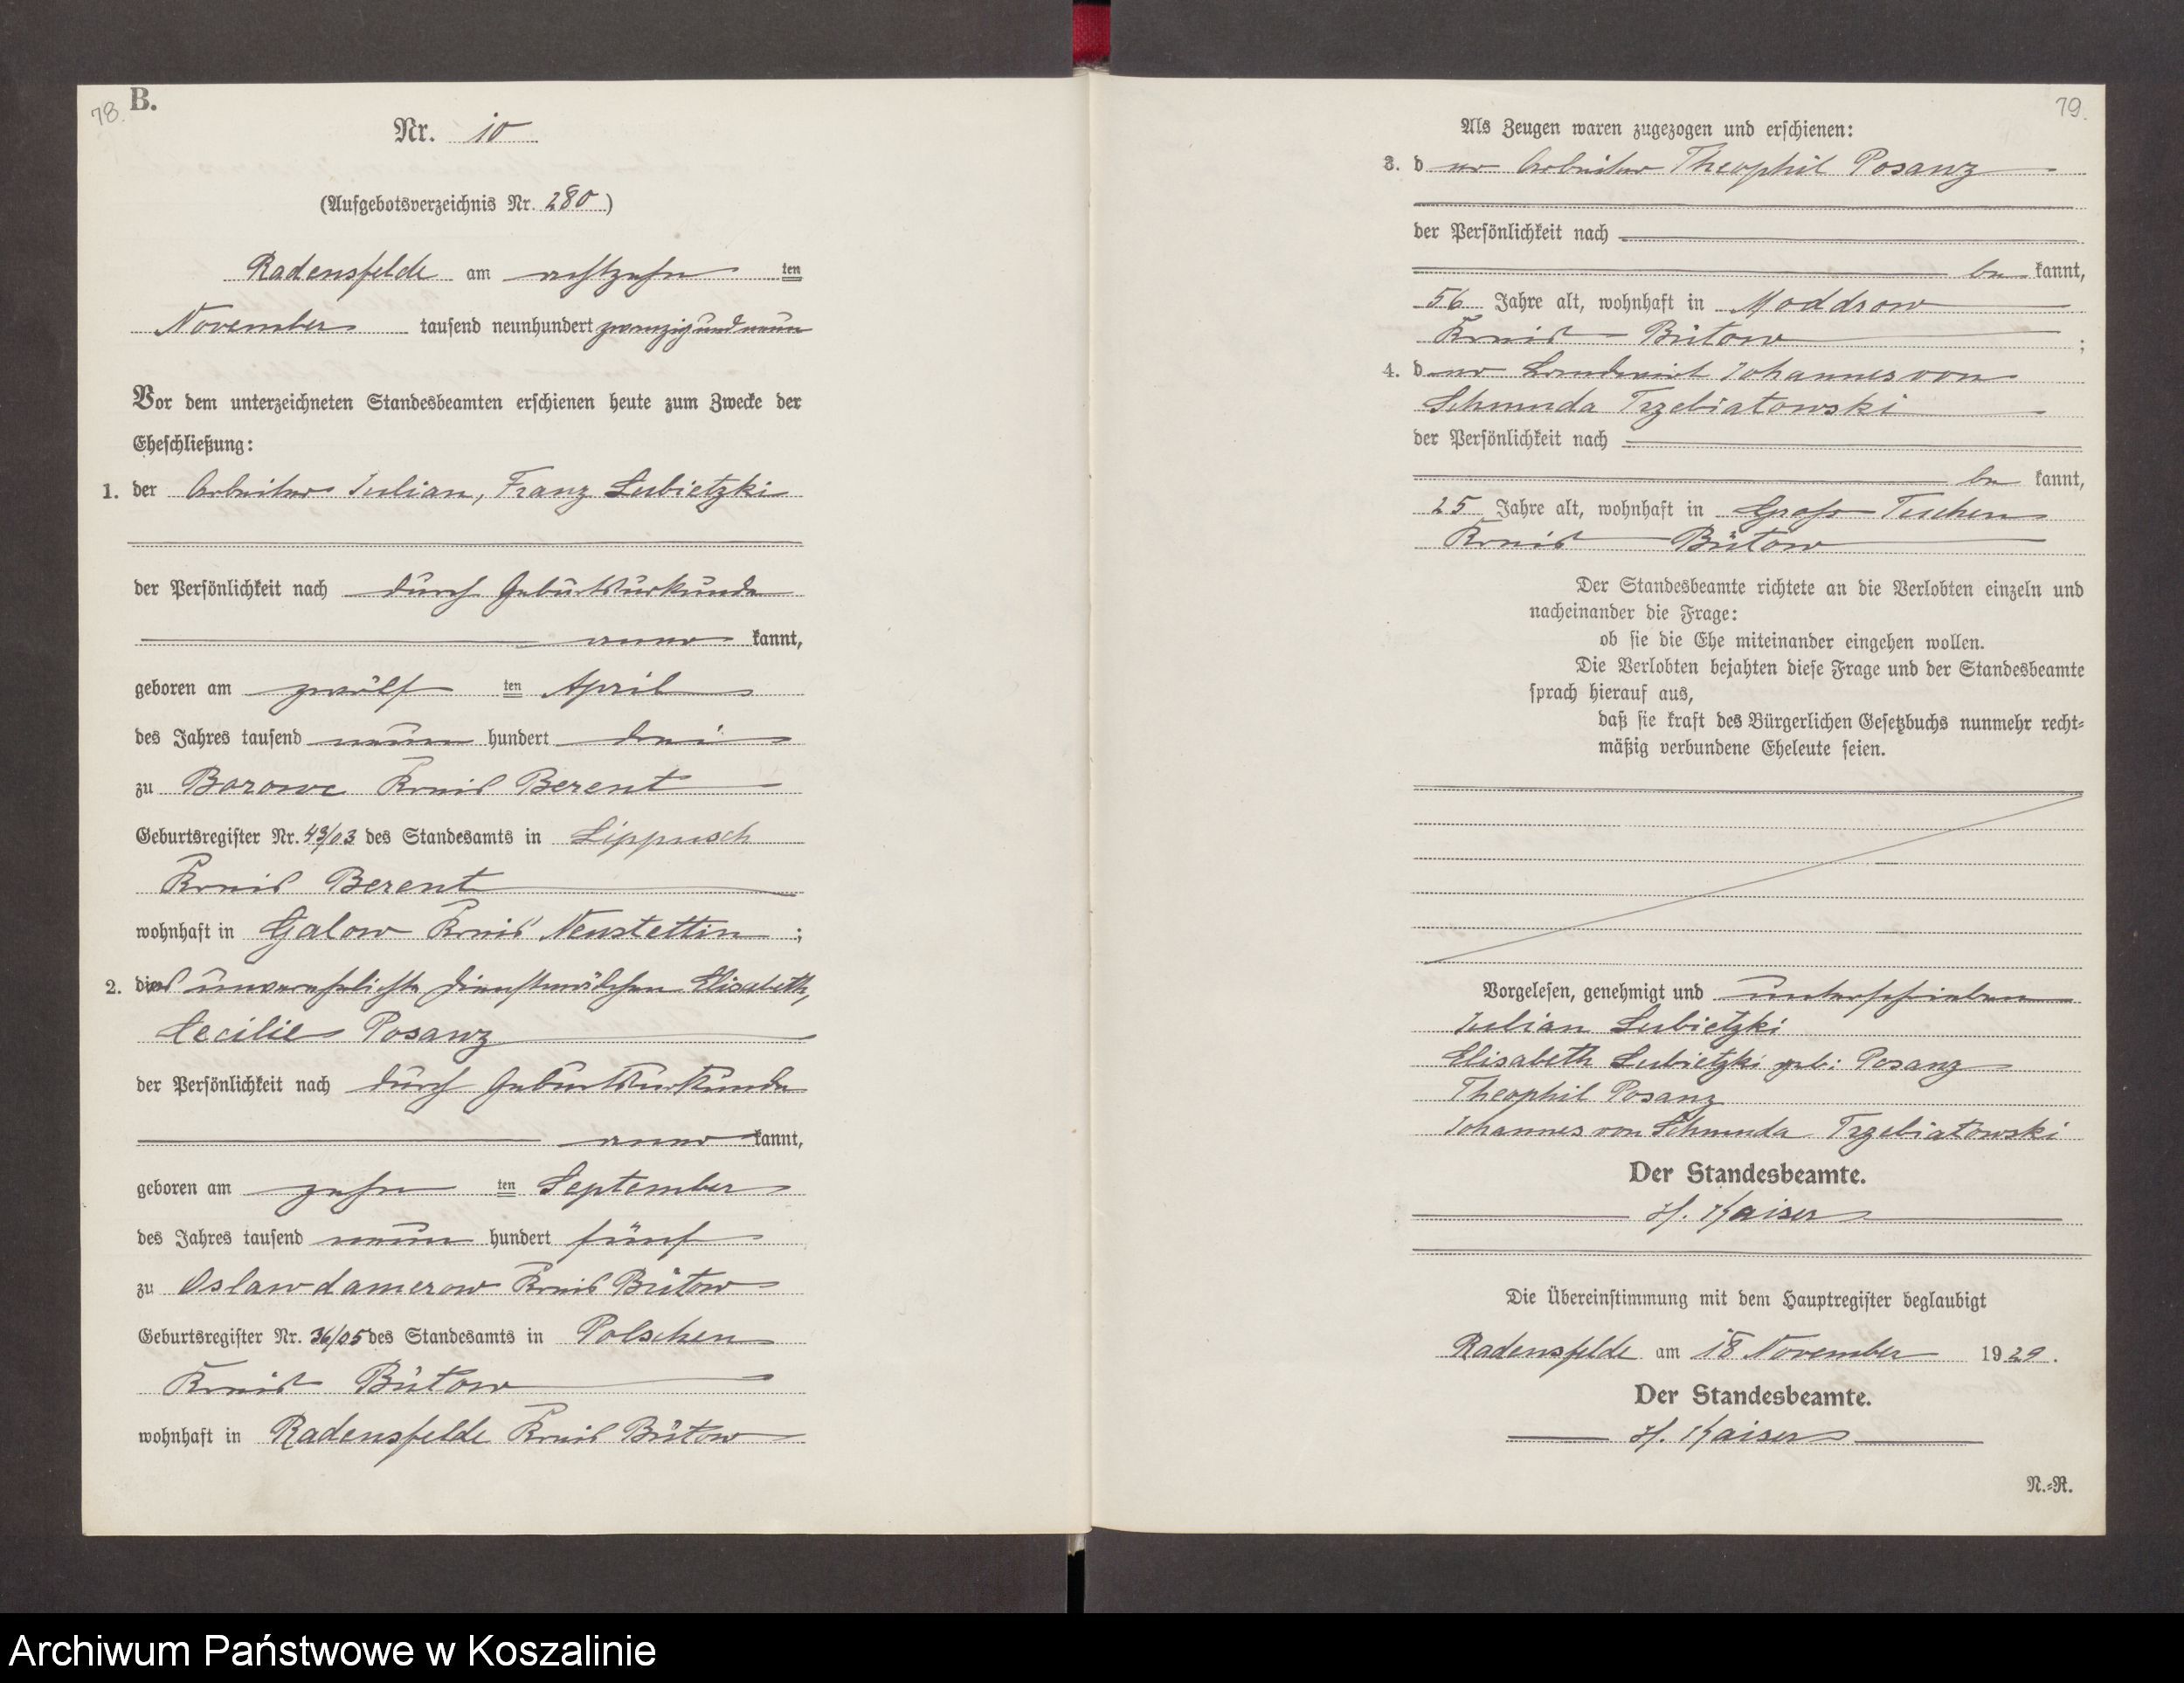 78.
B.
Nr. 10
(Aufgebotsverzeichnis Nr. 280)
Radensfelde am achtzehn ten
November tausend neunhundert zwanzig und neun
Vor dem unterzeichneten Standesbeamten erschienen heute zum Zwecke der
Eheschließung:
1. der Arbeiter Julian, Franz Lubietzki
der Persönlichkeit nach durch Geburtsurkunde
aner kannt,
geboren am zwölf ten April
des Jahres tausend neun hundert drei
zu Borowc Kreis Berent
Geburtsregister Nr. 43/03 des Standesamts in Lippusch
Kreis Berent
wohnhaft in Galow Kreis Neustettin ;
2. das unverehelichte Dienstmädchen Elisabeth,
Cecilie Posanz
der Persönlichkeit nach durch Geburtsurkunde
aner kannt,
geboren am zehn ten September
des Jahres tausend neun hundert fünf
zu Oslawdamerow Kreis Bütow
Geburtsregister Nr. 36/05 des Standesamts in Polschen
Kreis Bütow
wohnhaft in Radensfelde Kreis Bütow
79.
Als Zeugen waren zugezogen und erschienen:
3. d er Arbeiter Theophil Posanz
der Persönlichkeit nach
be kannt,
56 Jahre alt, wohnhaft in Moddrow
Kreis Bütow ;
4. d er Landwirt Johannes von
Schmuda Trzebiatowski
der Persönlichkeit nach
be kannt,
25 Jahre alt, wohnhaft in Groß Tuchen
Kreis Bütow
Der Standesbeamte richtete an die Verlobten einzeln und
nacheinander die Frage:
ob sie die Ehe miteinander eingehen wollen.
Die Verlobten bejahten diese Frage und der Standesbeamte
sprach hierauf aus,
daß sie kraft des Bürgerlichen Gesetzbuchs nunmehr recht-
mäßig verbundene Eheleute seien.
Vorgelesen, genehmigt und unterschrieben
Julian Lubietzki
Elisabeth Lubietzki geb: Posanz
Theophil Posanz
Johannes von Schmuda Trzebiatowski
Der Standesbeamte.
H. Kaiser
Die Übereinstimmung mit dem Hauptregister beglaubigt
Radensfelde am 18 November 1929.
Der Standesbeamte.
H. Kaiser
N.-R.
Archiwum Państwowe w Koszalinie